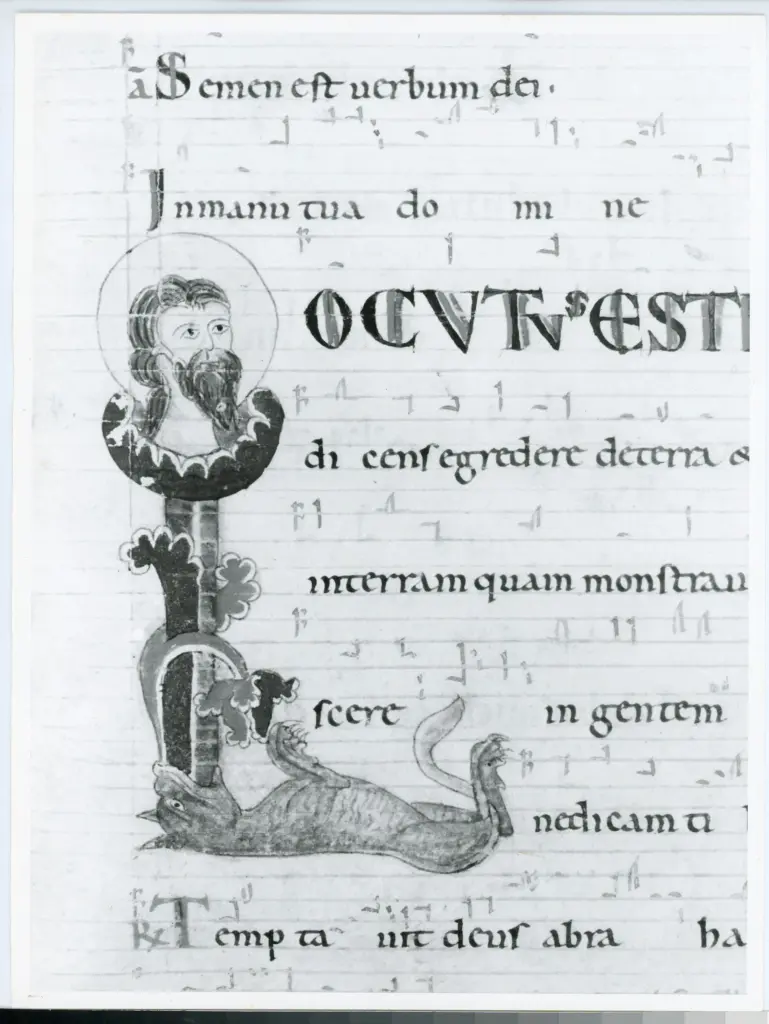 ā Semen est uerbum dei.
Inmanu tua do mi ne
LOCVTVS EST
di cens egredere deterra &
interram quam monstrau
scere in gentem
nedicam ti
Temp ta uit deus abra ha